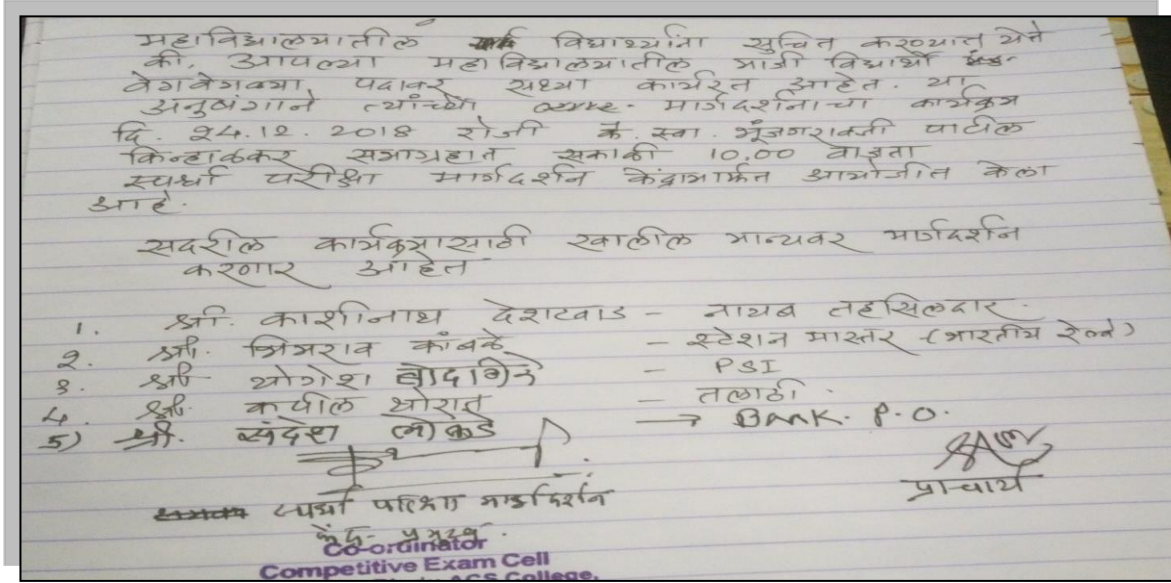 महाविद्यालयातील विद्यार्थ्यांना सुचित करण्यात येते
की, आपल्या महाविद्यालयातील माजी विद्यार्थी
वेगवेगळ्या पदावर सध्या कार्यरत आहेत. या
अनुषंगाने त्यांच्या मार्गदर्शनाचा कार्यक्रम
दि. 24.12.2018 रोजी कै. स्वा. भुंजगरावजी पाटील
किन्हाळकर सभाग्रहात सकाळी 10.00 वाजता
स्पर्धा परीक्षा मार्गदर्शन केंद्रामार्फत आयोजीत केला
आहे.
सदरील कार्यक्रमासाठी खालील मान्यवर मार्गदर्शन
करणार आहेत
1. श्री. काशीनाथ देशटवाड - नायब तहसिलदार.
2. श्री. भिमराव कांबळे - स्टेशन मास्तर (भारतीय रेल्वे)
3. श्री योगेश - PSI
4. श्री. कपील थोरात - तलाठी.
5) श्री. संदेश लोकडे → BANK. P.O.
स्पर्धा परिक्षा मार्गदर्शन प्राचार्य
केंद्र- प्रमुख.
Co-ordinator
Competitive Exam Cell
ACS College,